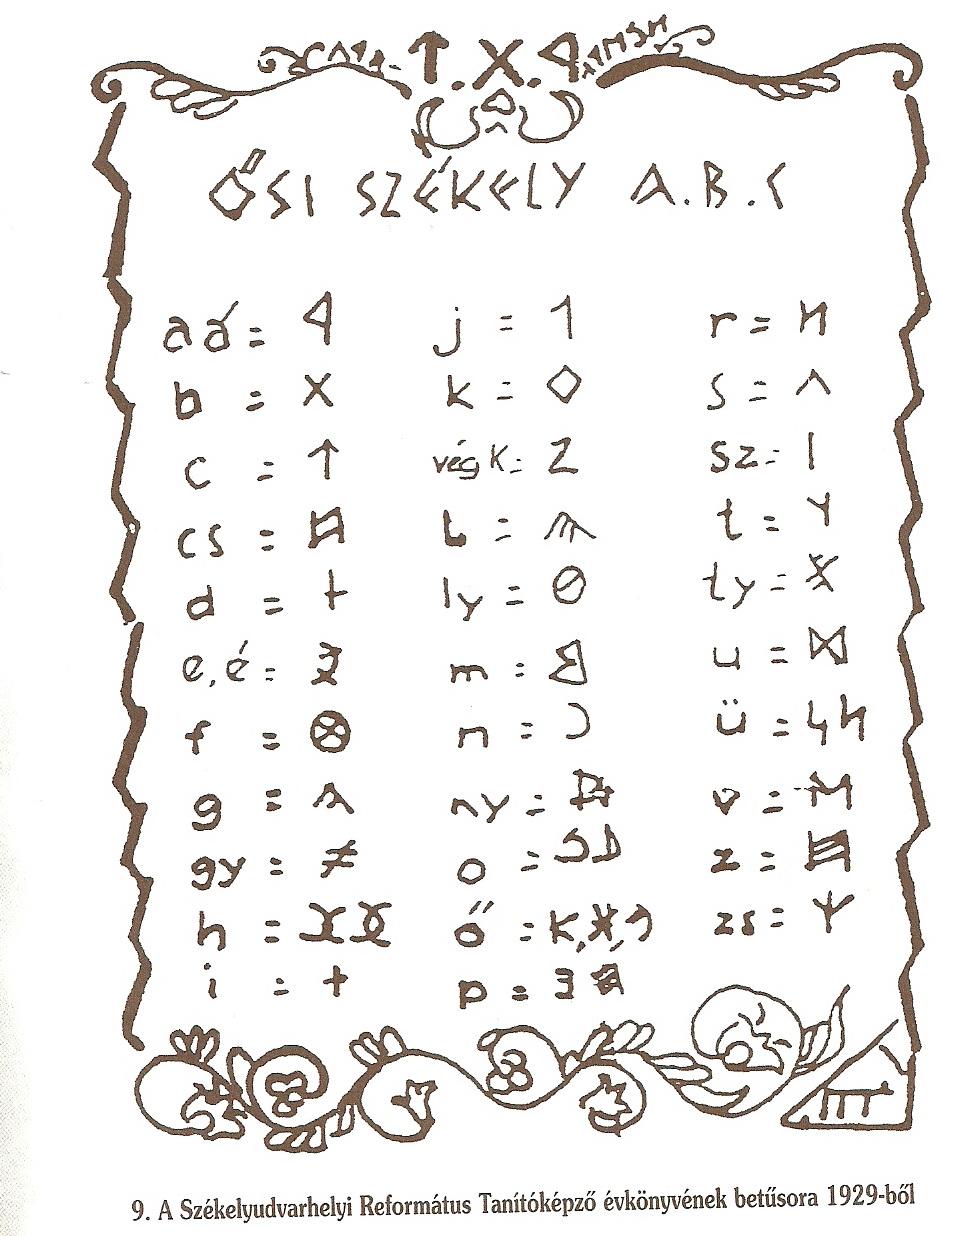 𐲀.𐲂.𐲄
ŐSI SZÉKELY A.B.C
aá = 𐲀 j = 𐲒 r = 𐲢
b = 𐲂 k = 𐲓 s = 𐲤
c = 𐲄 vég k = 𐲔 sz = 𐲥
cs = 𐲆 L = 𐲖 t = 𐲦
d = 𐲇 ly = 𐲗 ty = 𐲨
e, é = 𐲉 m = 𐲘 u = 𐲪
f = 𐲌 n = 𐲙 ü =
g = 𐲍 ny = 𐲚 v = 𐲮
gy = 𐲎 o = 𐲛 z = 𐲯
h = 𐲏 ő = zs = 𐲰
i = 𐲐 p = 𐲠
9. A Székelyudvarhelyi Református Tanítóképző évkönyvének betűsora 1929-ből